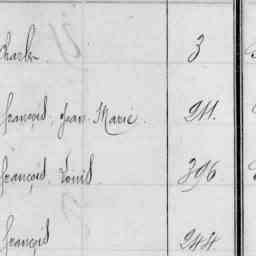 Charles 3
François, Jean Marie. 211.
François, Louis 396
François 244.